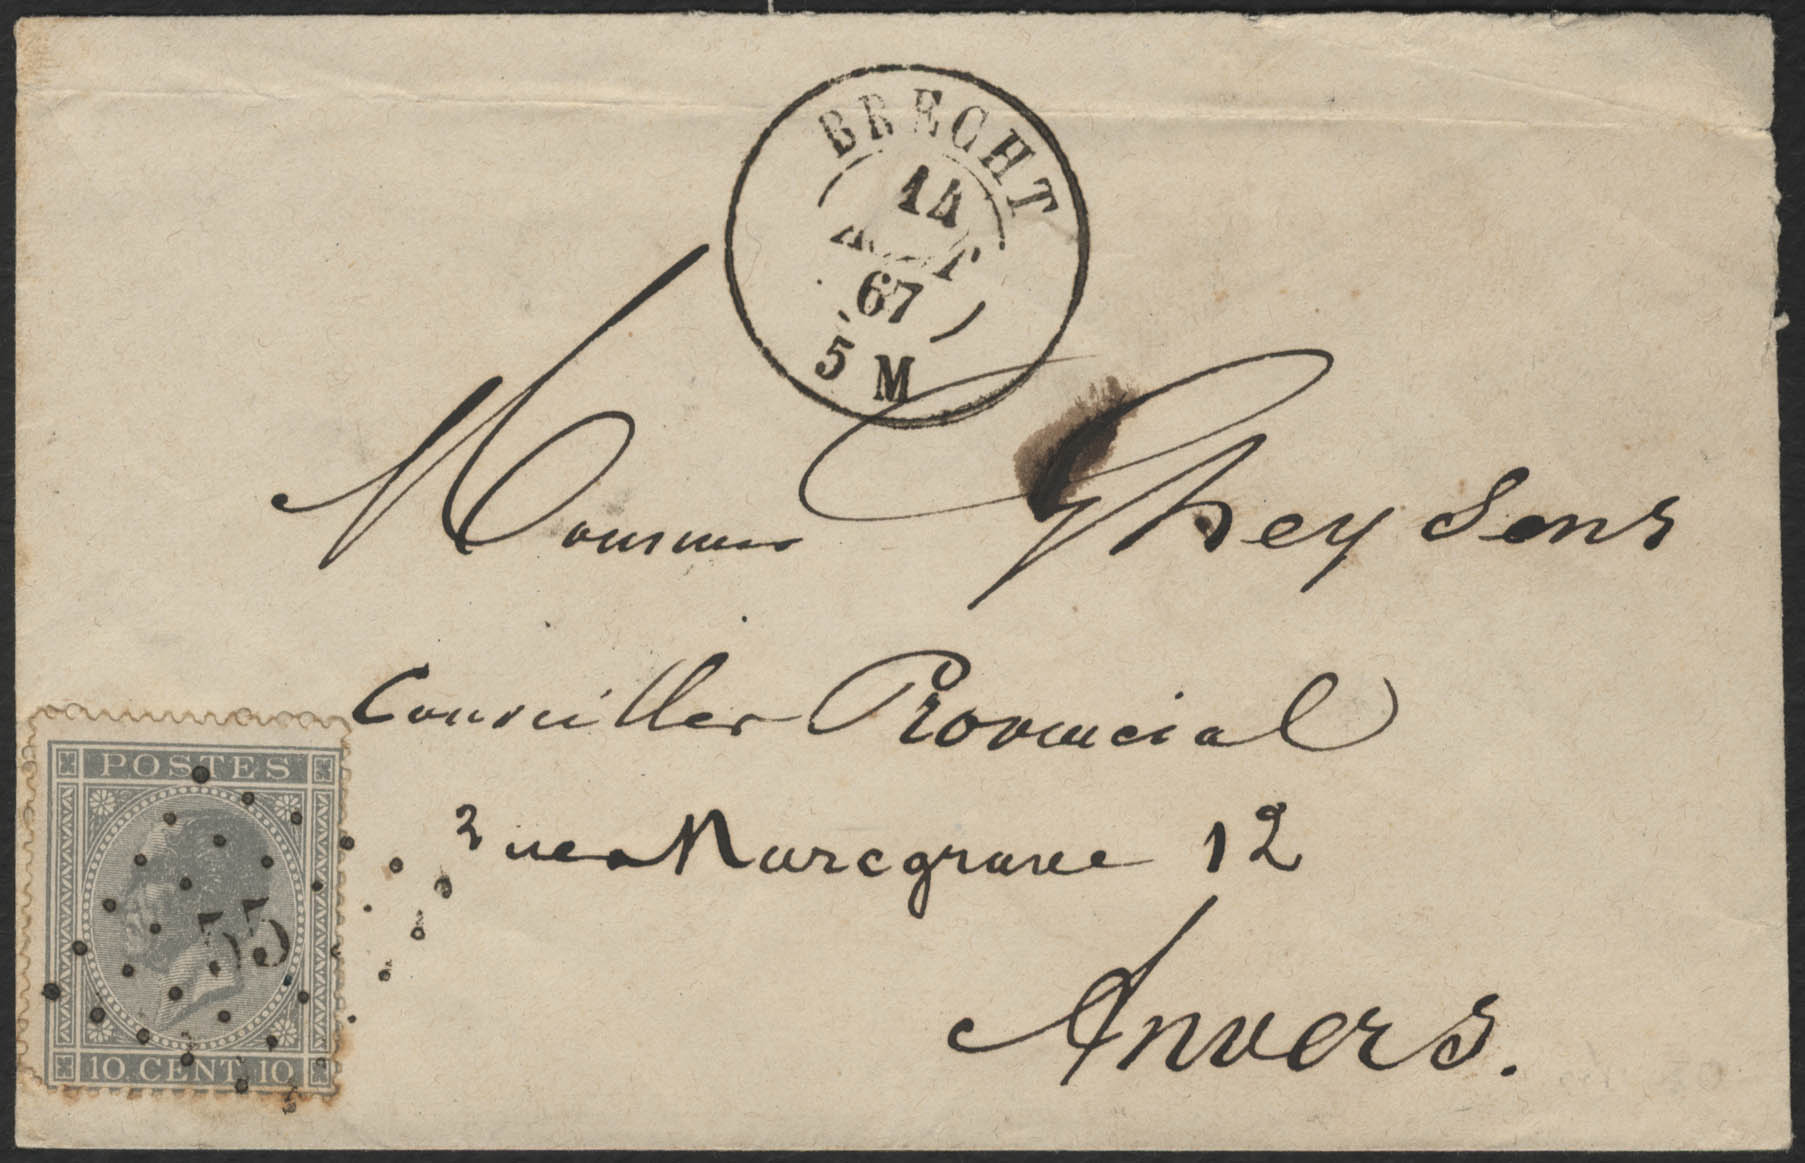 BRECHT
14
AOUT
67
5 M
Monsieur Gheysens
Conseiller Provincial
rue Marcgrave 12
Anvers.
POSTES
55
10 CENT. 10